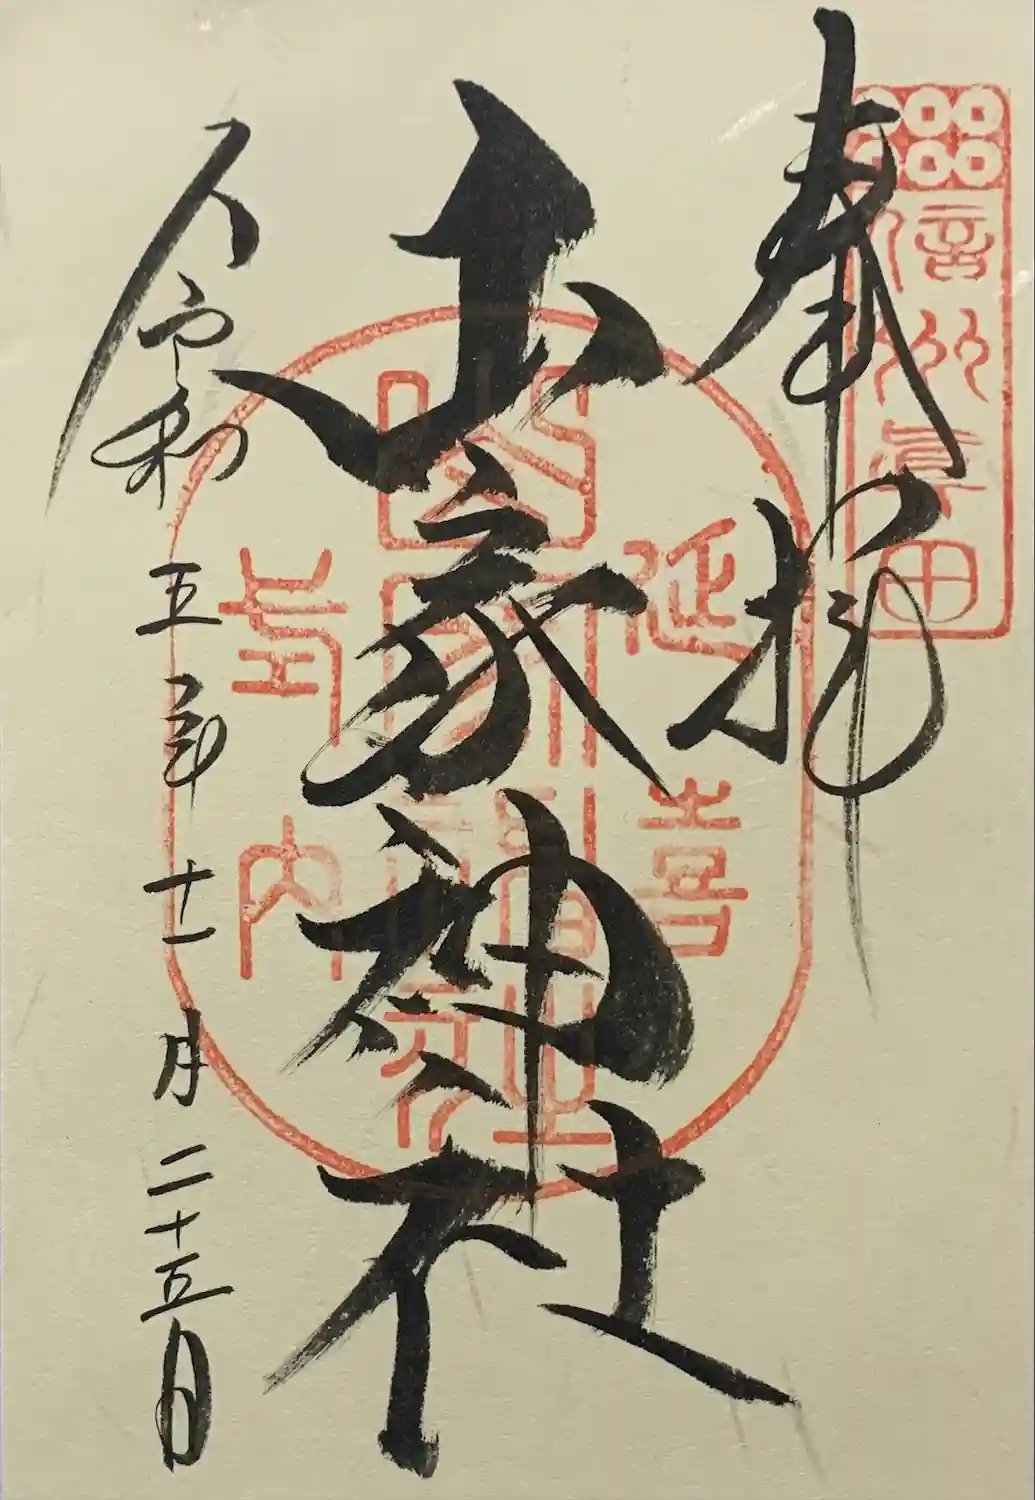 奉拝
信州眞田
山家神社
延喜
式内
令和五年十一月二十五日